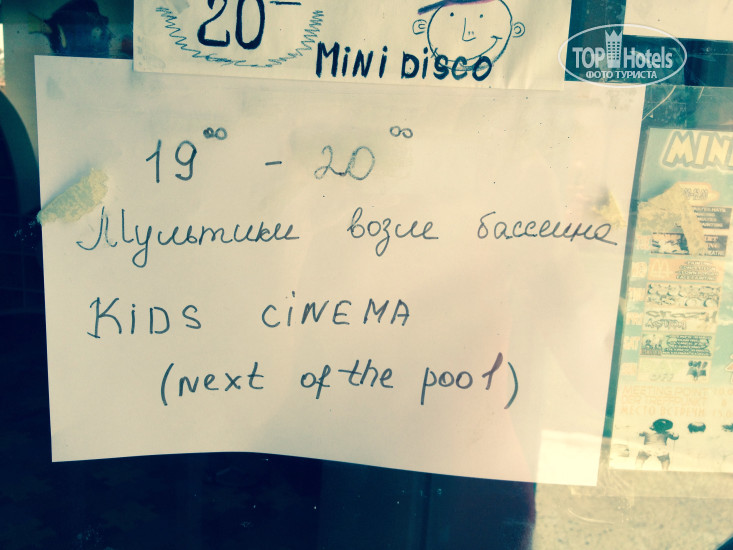 20
MiNi DISCO
TOP Hotels
ФОТО ТУРИСТА
19⁰⁰ - 20⁰⁰
Мультики возле бассеина
KiDS CiNEMA
(next of the pool)
MINI